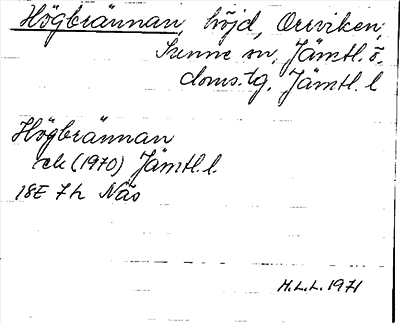 Högbrännan, höjd, Orrviken,
Sunne sn, Jämtl. ö.
doms.tg, Jämtl. l
Högbrännan
ek (1970) Jämtl. l.
18E 7h Näs
M.L.L. 1971